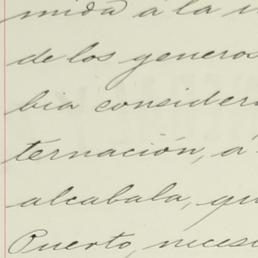 mida á la
de los generos
bia consider
ternación, á
alcabala, qu
Puerto, neces